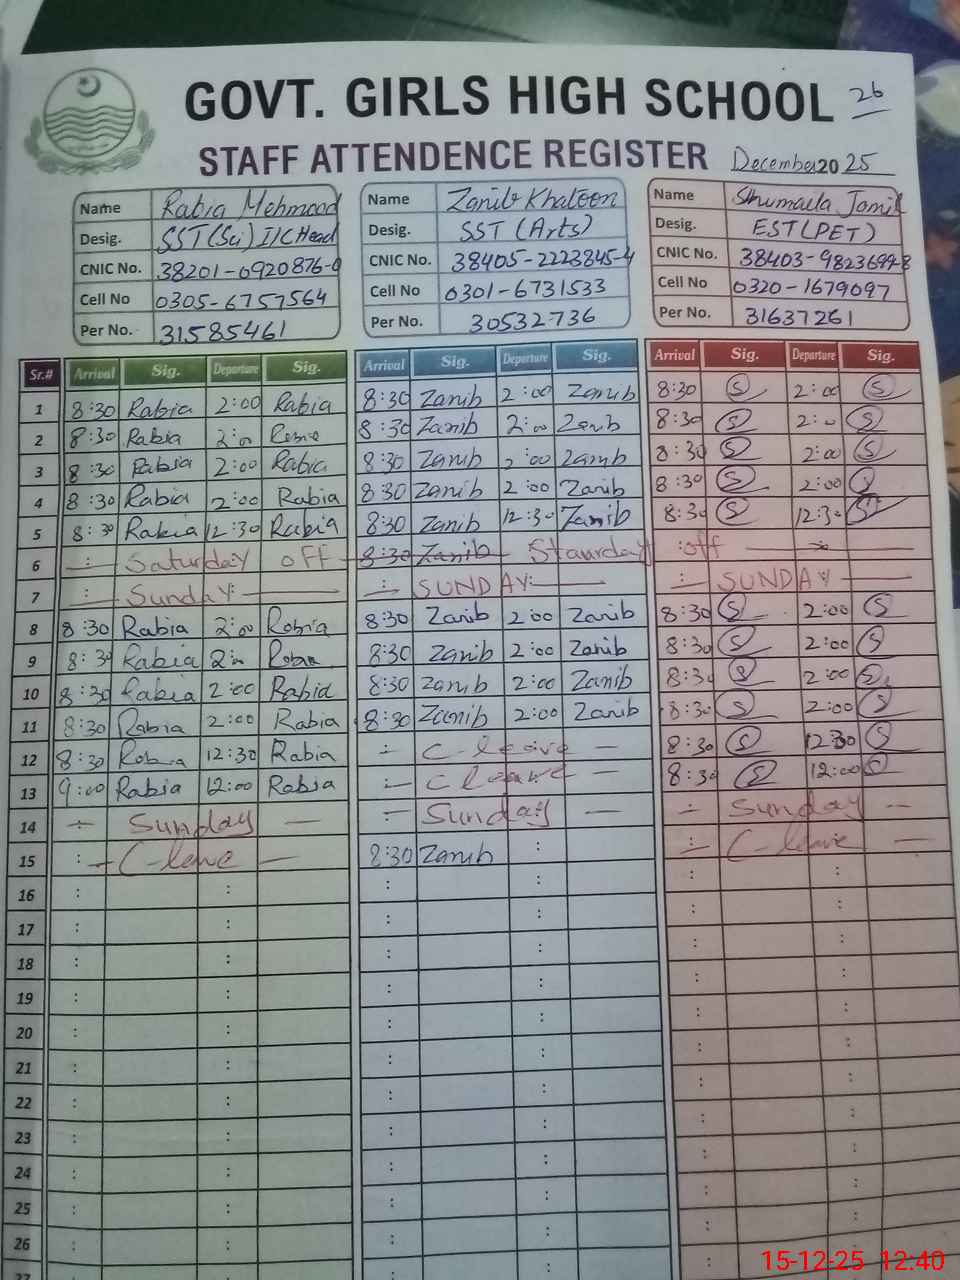 GOVT. GIRLS HIGH SCHOOL 26
STAFF ATTENDENCE REGISTER December 2025
Name Rabia Mehmood Name Zanib Khatoon Name Shumaila Jamil
Desig. SST(Sci) I/C Head Desig. SST (Arts) Desig. EST(PET)
CNIC No. 38201-0920876-0 CNIC No. 38405-2223845-4 CNIC No. 38403-9823699-8
Cell No 0305-6757564 Cell No 0301-6731533 Cell No 0320-1679097
Per No. 31585461 Per No. 30532736 Per No. 31637261
Sr.# Arrival Sig. Departure Sig. Arrival Sig. Departure Sig. Arrival Sig. Departure Sig.
1 8:30 Rabia 2:00 Rabia 8:30 Zanib 2:00 Zanib 8:30 S 2:00 S
2 8:30 Rabia 2:00 Rabia 8:30 Zanib 2:00 Zanib 8:30 S 2:00 S
3 8:30 Rabia 2:00 Rabia 8:30 Zanib 2:00 Zanib 8:30 S 2:00 S
4 8:30 Rabia 2:00 Rabia 8:30 Zanib 2:00 Zanib 8:30 S 2:00 S
5 8:30 Rabia 12:30 Rabia 8:30 Zanib 12:30 Zanib 8:30 S 12:30 S
6 Saturday off 8:30 Zanib Staurday off
7 Sunday SUNDAY SUNDAY
8 8:30 Rabia 2:00 Rabia 8:30 Zanib 2:00 Zanib 8:30 S 2:00 S
9 8:30 Rabia 2:00 Rabia 8:30 Zanib 2:00 Zanib 8:30 S 2:00 S
10 8:30 Rabia 2:00 Rabia 8:30 Zanib 2:00 Zanib 8:30 S 2:00 S
11 8:30 Rabia 2:00 Rabia 8:30 Zanib 2:00 Zanib 8:30 S 2:00 S
12 8:30 Rabia 12:30 Rabia C-leave 8:30 S 12:30 S
13 9:00 Rabia 12:00 Rabia C leave 8:30 S 12:00 S
14 Sunday Sunday Sunday
15 C-leave 8:30 Zanib : C-leave
16 : : : : : :
17 : : : : : :
18 : : : : : :
19 : : : : : :
20 : : : : : :
21 : : : : : :
22 : : : : : :
23 : : : : : :
24 : : : : : :
25 : : : : : :
26 : : : : : :
27
15-12-25 12:40